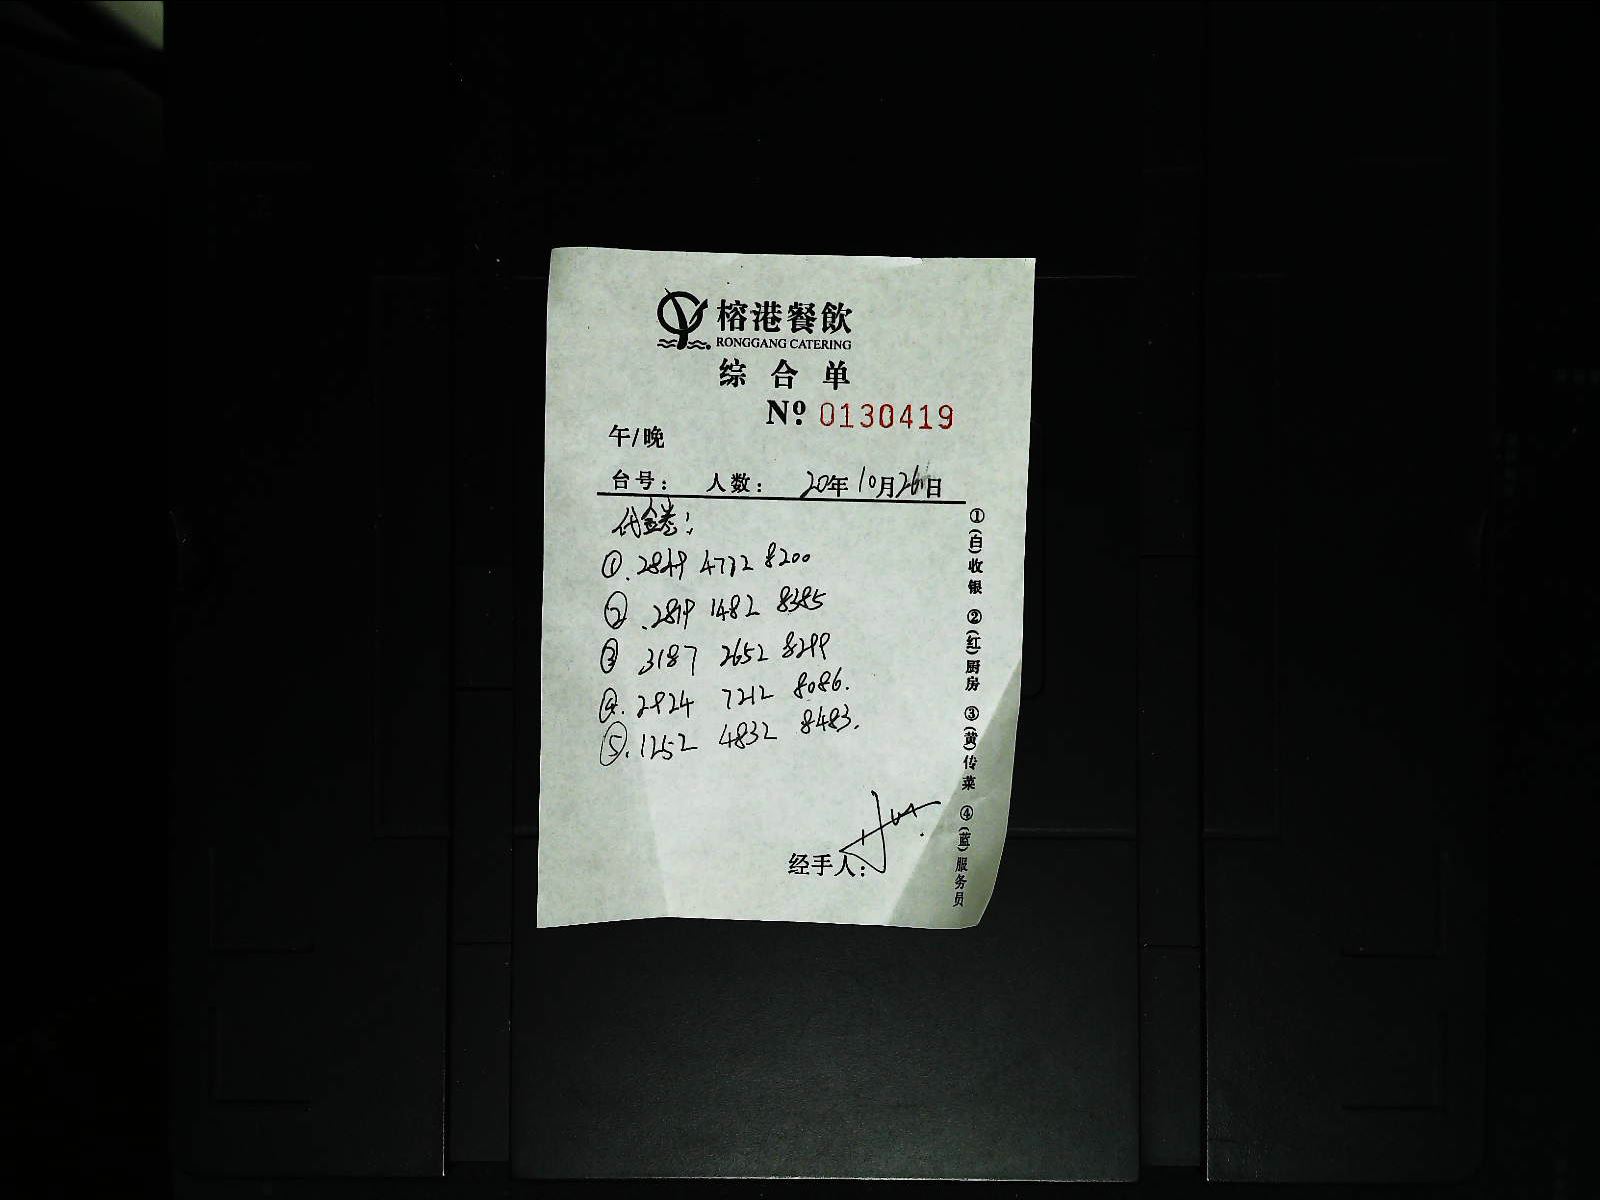 榕港餐飲
RONGGANG CATERING
综合单
Nº. 0130419
午/晚
台号： 人数： 20年10月26日
代金卷：
①.2849 4772 8200
②.2819 1482 8385
③ 3187 2652 8299
④.2924 7212 8086.
⑤.1252 4832 8483.
经手人：
①(白)收银 ②(红)厨房 ③(黄)传菜 ④(蓝)服务员